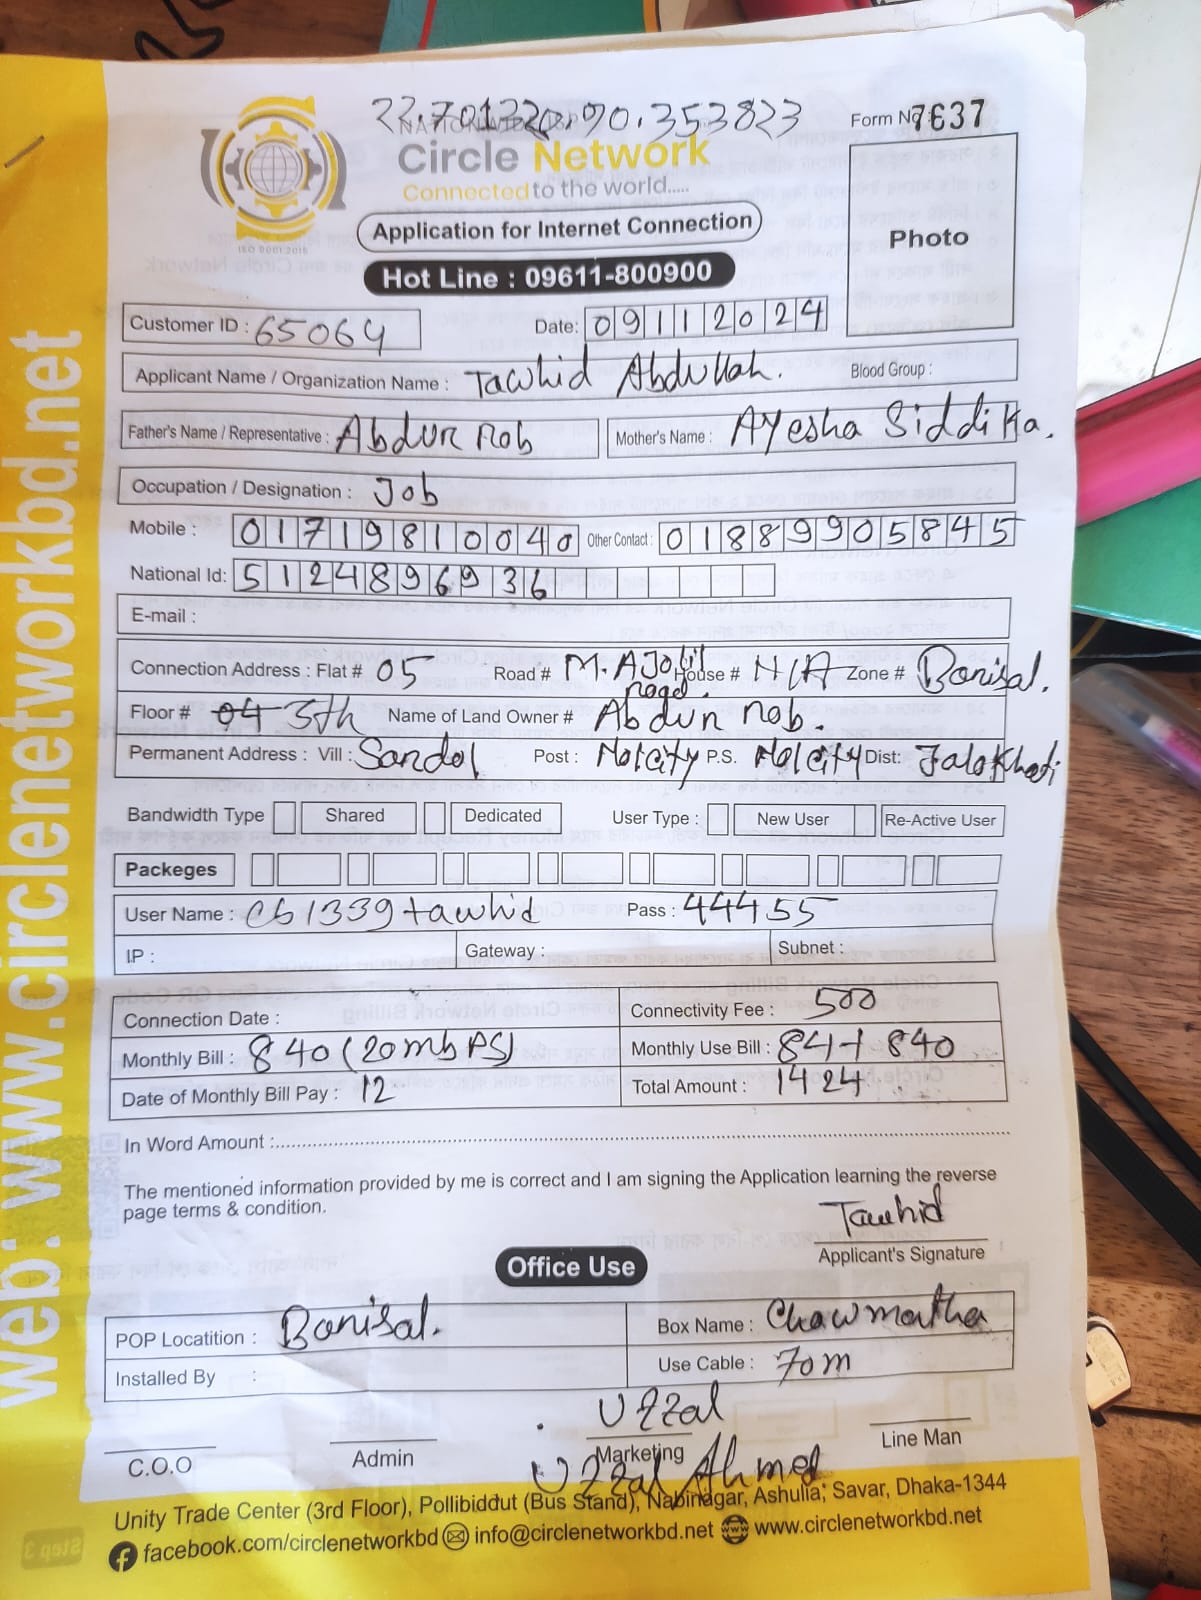 22.701320,90.353823
Form No: 7637
Circle Network
Connected to the world.....
ISO 9001:2015
Application for Internet Connection
Photo
Hot Line : 09611-800900
Customer ID : 65064 Date: 09112024
Applicant Name / Organization Name : Tawhid Abdullah. Blood Group :
Father's Name / Representative : Abdur Rob Mother's Name : Ayesha Siddika.
Occupation / Designation : Job
Mobile : 01719810040 Other Contact : 01889905845
National Id: 5124896936
E-mail :
Connection Address : Flat # 05 Road # M. A Jolil road. House # N/A Zone # Barisal.
Floor # 04 5th Name of Land Owner # Abdur Rob.
Permanent Address : Vill : Sandol Post : Nolcity P.S. Nolcity Dist: Jalokhati
Bandwidth Type Shared Dedicated User Type : New User Re-Active User
Packeges
User Name : cb1339tawhid Pass : 44455
IP : Gateway : Subnet :
Connection Date : Connectivity Fee : 500
Monthly Bill : 840 (20mbPS) Monthly Use Bill : 84+840
Date of Monthly Bill Pay : 12 Total Amount : 1424
In Word Amount :
The mentioned information provided by me is correct and I am signing the Application learning the reverse
page terms & condition.
Tawhid
Applicant's Signature
Office Use
POP Locatition : Barisal. Box Name : Chawmatha
Installed By : Use Cable : 70m
Uzzal
C.O.O Admin Marketing Line Man
Uzzal Ahmed
Unity Trade Center (3rd Floor), Pollibiddut (Bus Stand), Nabinagar, Ashulia, Savar, Dhaka-1344
facebook.com/circlenetworkbd info@circlenetworkbd.net www.circlenetworkbd.net
web: www.circlenetworkbd.net